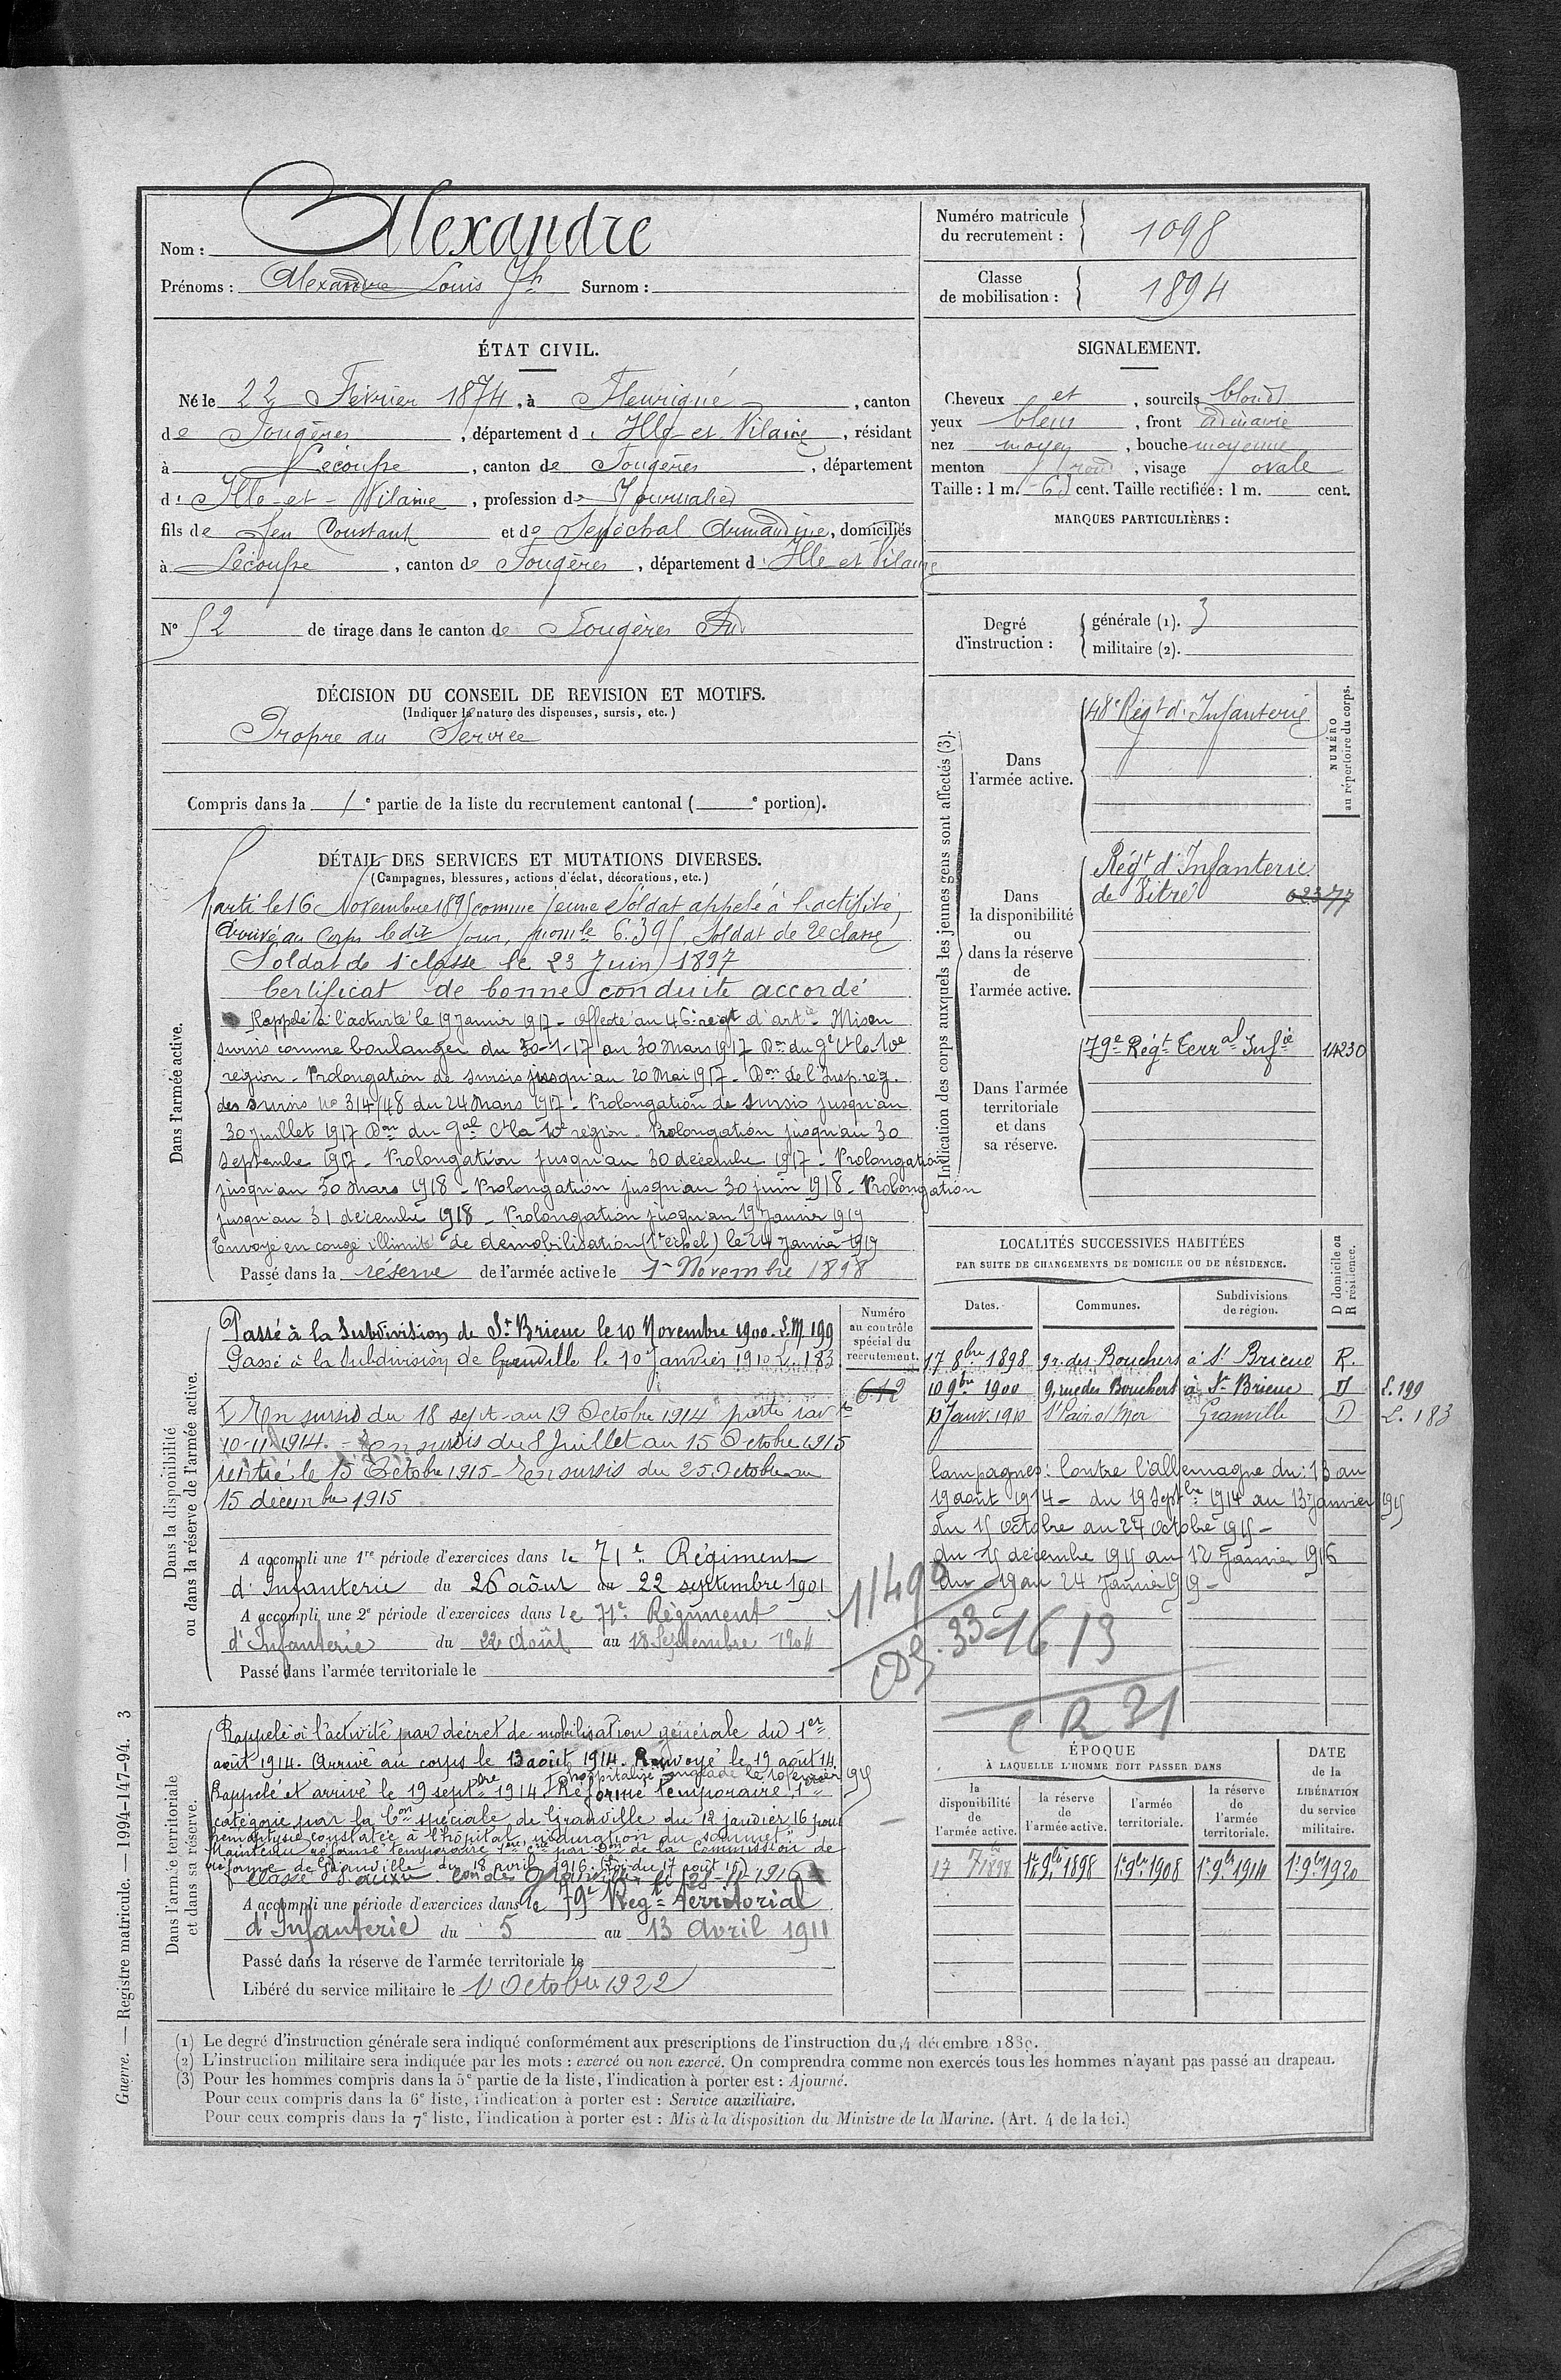 Nom : Alexandre
Prénoms : Alexandre Louis Jh Surnom :
Numéro matricule du recrutement : 1098
Classe de mobilisation : 1894
ÉTAT CIVIL.
Né le 22 Février 1874, à Fleurigné, canton
de Fougères, département d'Ille-et-Vilaine, résidant
à Lécousse, canton de Fougères, département
d'Ille-et-Vilaine, profession de Journalier
fils de feu Constant et de Sénéchal Armandine, domiciliés
à Lécousse, canton de Fougères, département d'Ille et Vilaine
N° 52 de tirage dans le canton de Fougères Sud
SIGNALEMENT.
Cheveux et, sourcils blonds
yeux bleus, front ordinaire
nez moyen, bouche moyenne
menton rond, visage ovale
Taille : 1 m. cent. Taille rectifiée : 1 m. cent.
MARQUES PARTICULIÈRES :
Degré d'instruction : générale (1). 3
militaire (2).
DÉCISION DU CONSEIL DE REVISION ET MOTIFS.
(Indiquer la nature des dispenses, sursis, etc.)
Propre au Service
Compris dans la 1e partie de la liste du recrutement cantonal ( e portion).
DÉTAIL DES SERVICES ET MUTATIONS DIVERSES.
(Campagnes, blessures, actions d'éclat, décorations, etc.)
Dans l'armée active.
Parti le 16 Novembre 1895 comme jeune Soldat appelé à l'activité,
Arrivé au Corps ledit jour, nom le 6.395. Soldat de 2e classe
Soldat de 1e classe le 23 Juin 1897
Certificat de bonne conduite accordé
Rappelé à l'activité le 19 Janvier 1917 - affecté au 46e régt d'artie - Mis en
sursis comme boulanger du 30-1-17 au 30 Mars 1917 Don du Gal Ct la 10e
région - Prolongation de sursis jusqu'au 20 Mai 1917 - Don de l'Insp. rég.
des sursis No 314/48 du 24 Mars 1917 - Prolongation de sursis jusqu'au
30 juillet 1917 Don du Gal Ct la 10e région - Prolongation jusqu'au 30
septembre 1917 - Prolongation jusqu'au 30 décembre 1917 - Prolongation
jusqu'au 30 mars 1918 - Prolongation jusqu'au 30 juin 1918 - Prolongation
jusqu'au 31 décembre 1918 - Prolongation jusqu'au 19 Janvier 1919
Envoyé en congé illimité de démobilisation le 24 Janvier 1919
Passé dans la réserve de l'armée active le 1er Novembre 1898
Indication des corps auxquels les jeunes gens sont affectés (3).
NUMÉRO au répertoire du corps.
Dans l'armée active.
48e Régt d'Infanterie
Dans la disponibilité ou dans la réserve de l'armée active.
Régt d'Infanterie
de Vitré
Dans l'armée territoriale et dans sa réserve.
79e Régt Terral Infie 14230
Dans la disponibilité ou dans la réserve de l'armée active.
Passé à la Subdivision de St Brieuc le 10 Novembre 1900. L.M 199
Passé à la Subdivision de Granville le 10 Janvier 1910 L. 183
En sursis du 18 sept au 19 Octobre 1914
10-11-1914. - En sursis du 8 Juillet au 15 Octobre 1915
rentré le 15 Octobre 1915 - En sursis du 25 Octobre au
15 décembre 1915
Numéro au contrôle spécial du recrutement.
612
A accompli une 1re période d'exercices dans le 71e Régiment
d'Infanterie du 26 août au 22 septembre 1901
A accompli une 2e période d'exercices dans le 71e Régiment
d'Infanterie du 22 Août au 18 Septembre 1904
Passé dans l'armée territoriale le
LOCALITÉS SUCCESSIVES HABITÉES
PAR SUITE DE CHANGEMENTS DE DOMICILE OU DE RÉSIDENCE.
Dates. Communes. Subdivisions de région. D domicile ou R résidence.
17 8bre 1898 9 r. des Bouchers à St Brieuc R.
10 9bre 1900 9, rue des Bouchers à St Brieuc D L. 199
10 Janv. 1910 St Pair s/ Mer Granville D L. 183
Campagnes : Contre l'allemagne du : 13 au
19 août 1914 - du 19 septbre 1914 au 13 janvier 1915
du 15 octobre au 24 octobre 1915 -
du 15 décembre 1915 au 12 Janvier 1916
du 19 au 24 Janvier 1919 -
1149
33-1613
C R 31
Dans l'armée territoriale et dans sa réserve.
Rappelé à l'activité par décret de mobilisation générale du 1er
août 1914. Arrivé au corps le 13 août 1914. Renvoyé le 19 août 14.
Rappelé et arrivé le 19 septbre 1914. Réformé temporaire 1ère
catégorie par la Con spéciale de Granville du 12 janvier 16 pour
hémoptysie constatée à l'hôpital, induration au sommet
Maintenu réformé temporaire 1ère cie par Don de la Commission de
réforme de Granville du 18 avril 1916.
Classé S. auxre Granville 28-11-1916
A accompli une période d'exercices dans le 79e Régt territorial
d'Infanterie du 5 au 13 Avril 1911
Passé dans la réserve de l'armée territoriale le
Libéré du service militaire le 1 Octobre 1922
ÉPOQUE
À LAQUELLE L'HOMME DOIT PASSER DANS
la disponibilité de l'armée active. la réserve de l'armée active. l'armée territoriale. la réserve de l'armée territoriale.
DATE de la LIBÉRATION du service militaire.
1er 9bre 1898 1er 9bre 1908 1er 9bre 1914 1er 9bre 1920
(1) Le degré d'instruction générale sera indiqué conformément aux prescriptions de l'instruction du 4 décembre 1889.
(2) L'instruction militaire sera indiquée par les mots : exercé ou non exercé. On comprendra comme non exercés tous les hommes n'ayant pas passé au drapeau.
(3) Pour les hommes compris dans la 5e partie de la liste, l'indication à porter est : Ajourné.
Pour ceux compris dans la 6e liste, l'indication à porter est : Service auxiliaire.
Pour ceux compris dans la 7e liste, l'indication à porter est : Mis à la disposition du Ministre de la Marine. (Art. 4 de la loi.)
Guerre. — Registre matricule. — 1994-147-94. 3